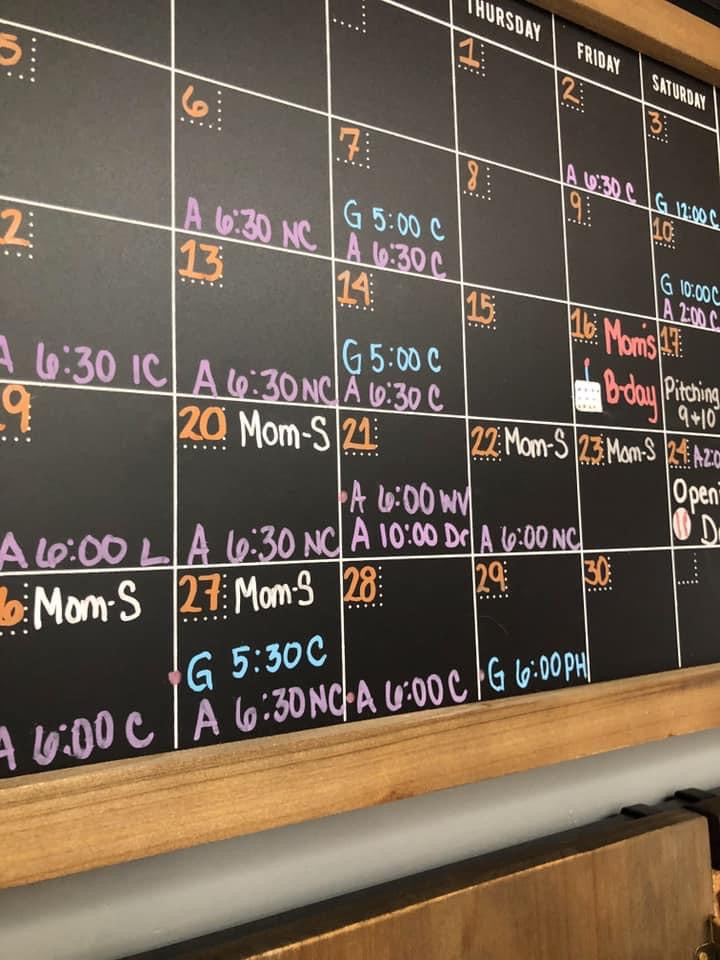 THURSDAY
FRIDAY
SATURDAY
1
2
A 6:30 C
3
G 12:00 C
5
6
A 6:30 NC
7
G 5:00 C
A 6:30 C
8
9
10
G 10:00 C
A 2:00 C
2
A 6:30 IC
13
A 6:30 NC
14
G 5:00 C
A 6:30 C
15
16 Mom's
B-day
17
Pitching
9+10
9
A 6:00 L
20 Mom-S
A 6:30 NC
21
A 6:00 WV
A 10:00 Dr
22 Mom-S
A 6:00 NC
23 Mom-S
24 A2:0
Open
D
6 Mom-S
A 6:00 C
27 Mom-S
G 5:30 C
A 6:30 NC
28
A 6:00 C
29
G 6:00 PH
30